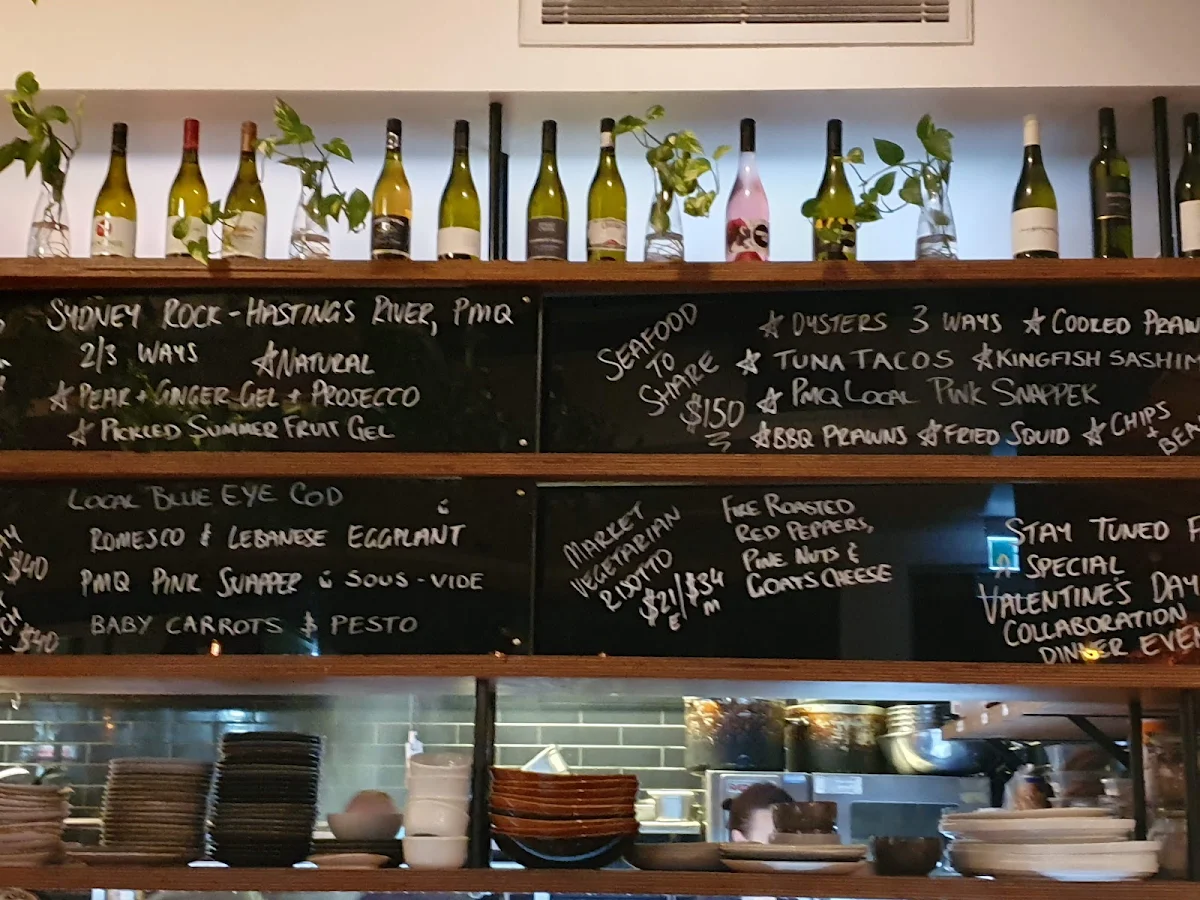 SYDNEY ROCK - HASTINGS RIVER, PMQ
2/3 WAYS ☆ NATURAL
☆ PEAR + GINGER GEL + PROSECCO
☆ PICKLED SUMMER FRUIT GEL
SEAFOOD
TO
SHARE
$150
☆ OYSTERS 3 WAYS ☆ COOKED PRAW
☆ TUNA TACOS ☆ KINGFISH SASHIM
☆ PMQ LOCAL PINK SNAPPER
☆ BBQ PRAWNS ☆ FRIED SQUID ☆ CHIPS
+
BEA
LOCAL BLUE EYE COD
ROMESCO & LEBANESE EGGPLANT
$40
PMQ PINK SNAPPER & SOUS-VIDE
BABY CARROTS & PESTO
$40
MARKET
VEGETARIAN
RISOTTO
$21/$34
E M
FIRE ROASTED
RED PEPPERS,
PINE NUTS &
GOATS CHEESE
STAY TUNED F
A SPECIAL
VALENTINE'S DAY
COLLABORATION
DINNER EVE